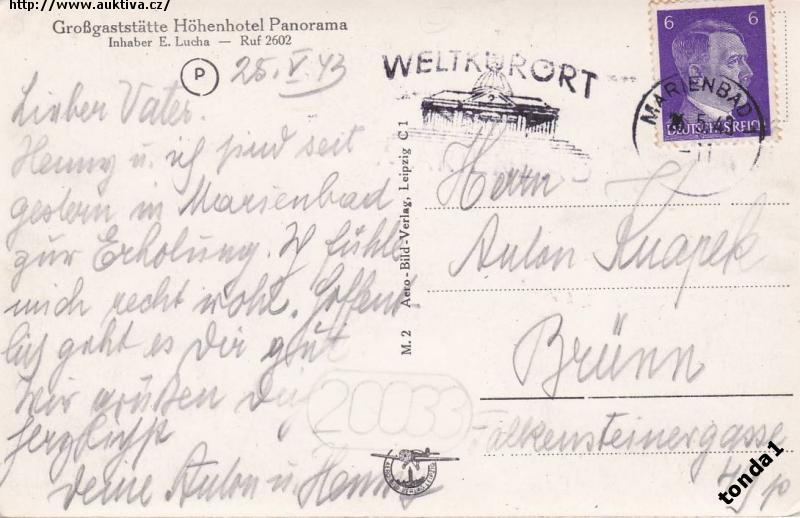 http://www.auktiva.cz/
Großgaststätte Höhenhotel Panorama
Inhaber E. Lucha — Ruf 2602
P
25. V. 43
Lieber Vater.
Henny u. ich sind seit
gestern in Marienbad
zur Erholung. I fühle
mich recht wohl. Hoffent-
lich geht es Dir gut
Wir grüßen Dich
herzlichst
Deine Anton u. Henny
WELTKURORT
MARIENBAD
5.43
-11
6 6
DEUTSCHES REICH
M. 2 Aero-Bild-Verlag, Leipzig C 1
Herrn
Anton Knapek
Brünn
Falkensteinergasse
20033
tonda1